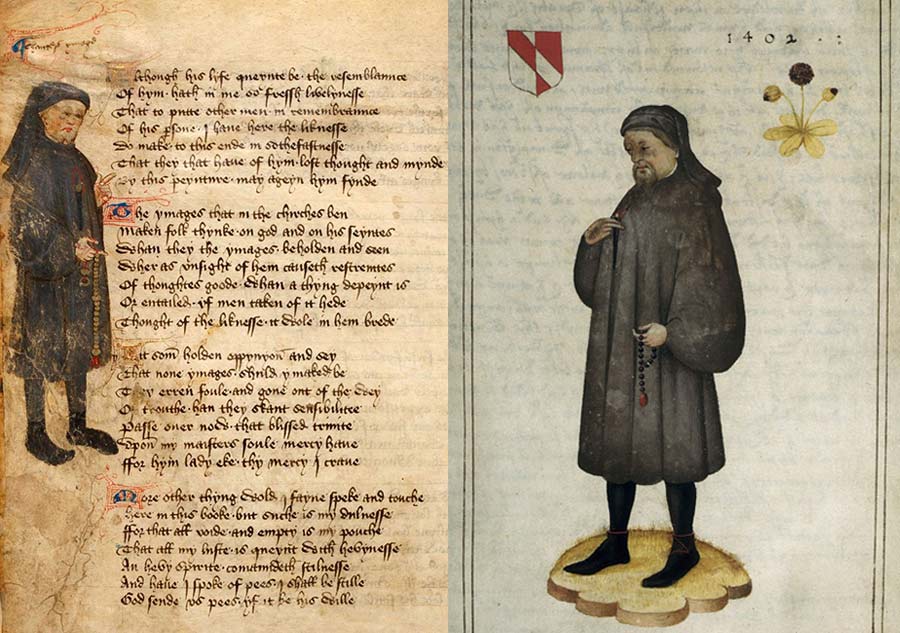 Chaucers ymage
Although his lyfe queynte be the resemblaunce
Of hym hath in me so fressh lyvelynesse
That to putte other men in remembraunce
Of his persone I have here the liknesse
Do make to this ende in sothefastnesse
That they that have of hym lost thought and mynde
By this peynture may ageyn hym fynde
The ymages that in the chirches ben
Maken folk thynke on god and on his seyntes
Whan they the ymages beholden and seen
Wher as unsight of hem causeth restreintes
Of thoughtes goode Whan a thyng depeynt is
Or entailed yf men taken of it hede
Thought of the liknesse it wole in hem brede
Yit som holden oppynyon and sey
That none ymages shuld ymaked be
They erren foule and gone out of the wey
Of trouthe han they skant sensibilitee
Passe over now that blissed trinite
Upon my maisters soule mercy have
ffor hym lady eke thy mercy I crave
More other thyng wold I fayne speke and touche
Here in this booke but suche is my dulnesse
ffor that all voide and empty is my pouche
That all my luste is queynt with hevynesse
An hevy spirite comaundeth stilnesse
And have I spoke of pees I shall be stille
God sende us pees yf it be his wille
1402